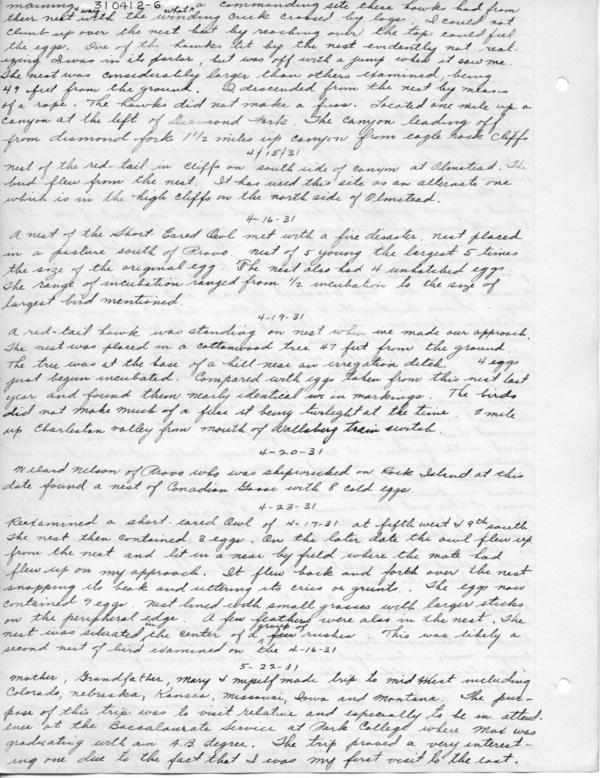 morning 310412-6 way what a commanding site these hawks had from
their nest with the winding creek crossed by logs. I could not
climb up over the nest but by reaching over the top could feel
the eggs. One of the hawks lit by the nest evidently not real-
izing I was in its parlor, but was off with a jump when it saw me.
The nest was considerably larger than others examined, being
49 feet from the ground. I descended from the nest by means
of a rope. The hawks did not make a fuss. Located one mile up a
canyon at the left of Diamond Fork. The canyon leading off
from diamond fork 1 1/2 miles up canyon from eagle rock cliffs
4/15/31
nest of the red-tail in cliffs on south side of canyon at Olmstead. The
bird flew from the nest. It has used this site as an alternate one
which is in the high cliffs on the north side of Olmstead.
4-16-31
A nest of the Short Eared Owl met with a fire disaster. nest placed
in a pasture south of Provo. nest of 5 young the largest 5 times
the size of the original egg. The nest also had 4 unhatched eggs.
The range of incubation ranged from 1/2 incubation to the size of
largest bird mentioned.
4-19-31
A red-tail hawk was standing on nest when we made our approach.
The nest was placed in a cottonwood tree 47 feet from the ground.
The tree was at the base of a hill near an irregation ditch. 4 eggs
just begun incubated. Compared with eggs taken from this nest last
year and found them nearly identical in markings. The birds
did not make much of a fuss it being twilight at the time. mile
up Charleston valley from mouth of Wallsberg train switch.
4-20-31
Wilard Nelson of Provo who was shipwrecked on Rock Island at this
date found a nest of Conadian Goose with 8 cold eggs
4-23-31
Reexamined a short-eared Owl of 4-17-31 at fifth west & 9th south
The nest then contained 3 eggs. On the later date the owl flew up
from the nest and lit in a near by field where the mate had
flew up on my approach. It flew back and forth over the nest
snapping its beak and uttering its cries or grunts. The eggs now
contained 7 eggs. nest lined with small grasses with larger sticks
on the peripheral edge. A few feathers were also in the nest. The
nest was situated in the center of a group of few rushes. This was likely a
second nest of bird examined on the 4-16-31
5-22-31
mother, Grandfather, Mary & myself made trip to mid West including
Colorado, nebraska, Kansas, Missouri, Iowa and Montana. The pur-
pose of this trip was to visit relative and especially to be in attend-
ence at the Baccalaurate Service at Park College where Mac was
graduating with an A.B. degree. The trip proved a very interest-
ing one due to the fact that I was my first visit to the east.